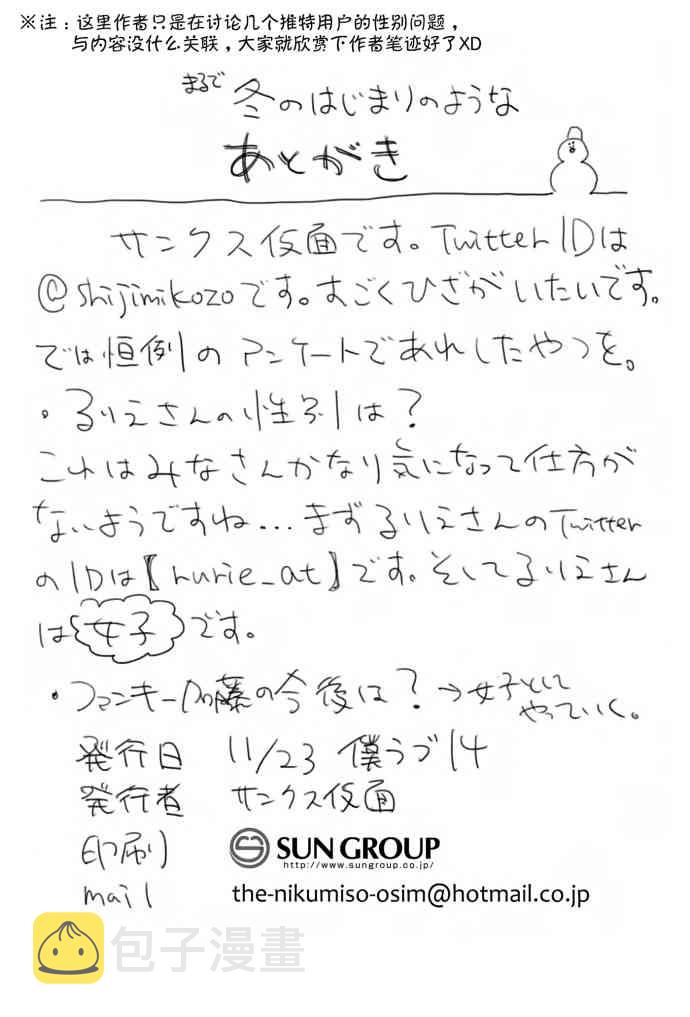 ※注：这里作者只是在讨论几个推特用户的性别问题，
与内容没什么关联，大家就欣赏下作者笔迹好了XD
まるで 冬のはじまりのような
あとがき
サンクス仮面です。Twitter IDは
@shijimikozoです。すごくひざがいたいです。
では恒例のアンケートであれしたやつを。
・るりえさんの性別は？
これはみなさんかなり気になって仕方が
ないようですね...まずるりえさんのTwitter
のIDは【rurie_at】です。そしてるりえさん
は女子です。
・ファンキー加藤の今後は？→女子として
やっていく。
発行日 11/23 僕ラブ14
発行者 サンクス仮面
印刷 SUN GROUP
http://www.sungroup.co.jp/
mail the-nikumiso-osim@hotmail.co.jp
包子漫畫